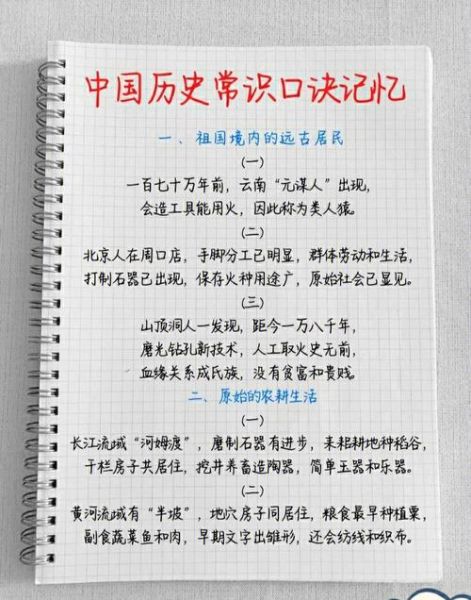 中国历史常识口诀记忆
一、祖国境内的远古居民
(一)
一百七十万年前，云南“元谋人”出现，
会造工具能用火，因此称为类人猿。
(二)
北京人在周口店，手脚分工已明显，群体劳动和生活，
打制石器已出现，保存火种用途广，原始社会已显见。
(三)
山顶洞人一发现，距今一万八千年，
磨光钻孔新技术，人工取火史无前，
血缘关系成氏族，没有贫富和贵贱。
二、原始的农耕生活
(一)
长江流域“河姆渡”，磨制石器有进步，耒耜耕地种稻谷，
干栏房子共居住，挖井养畜造陶器，简单玉器和乐器。
(二)
黄河流域有“半坡”，地穴房子同居住，粮食最早种植粟，
副食蔬菜鱼和肉，早期文字出雏形，还会纺线和织布。